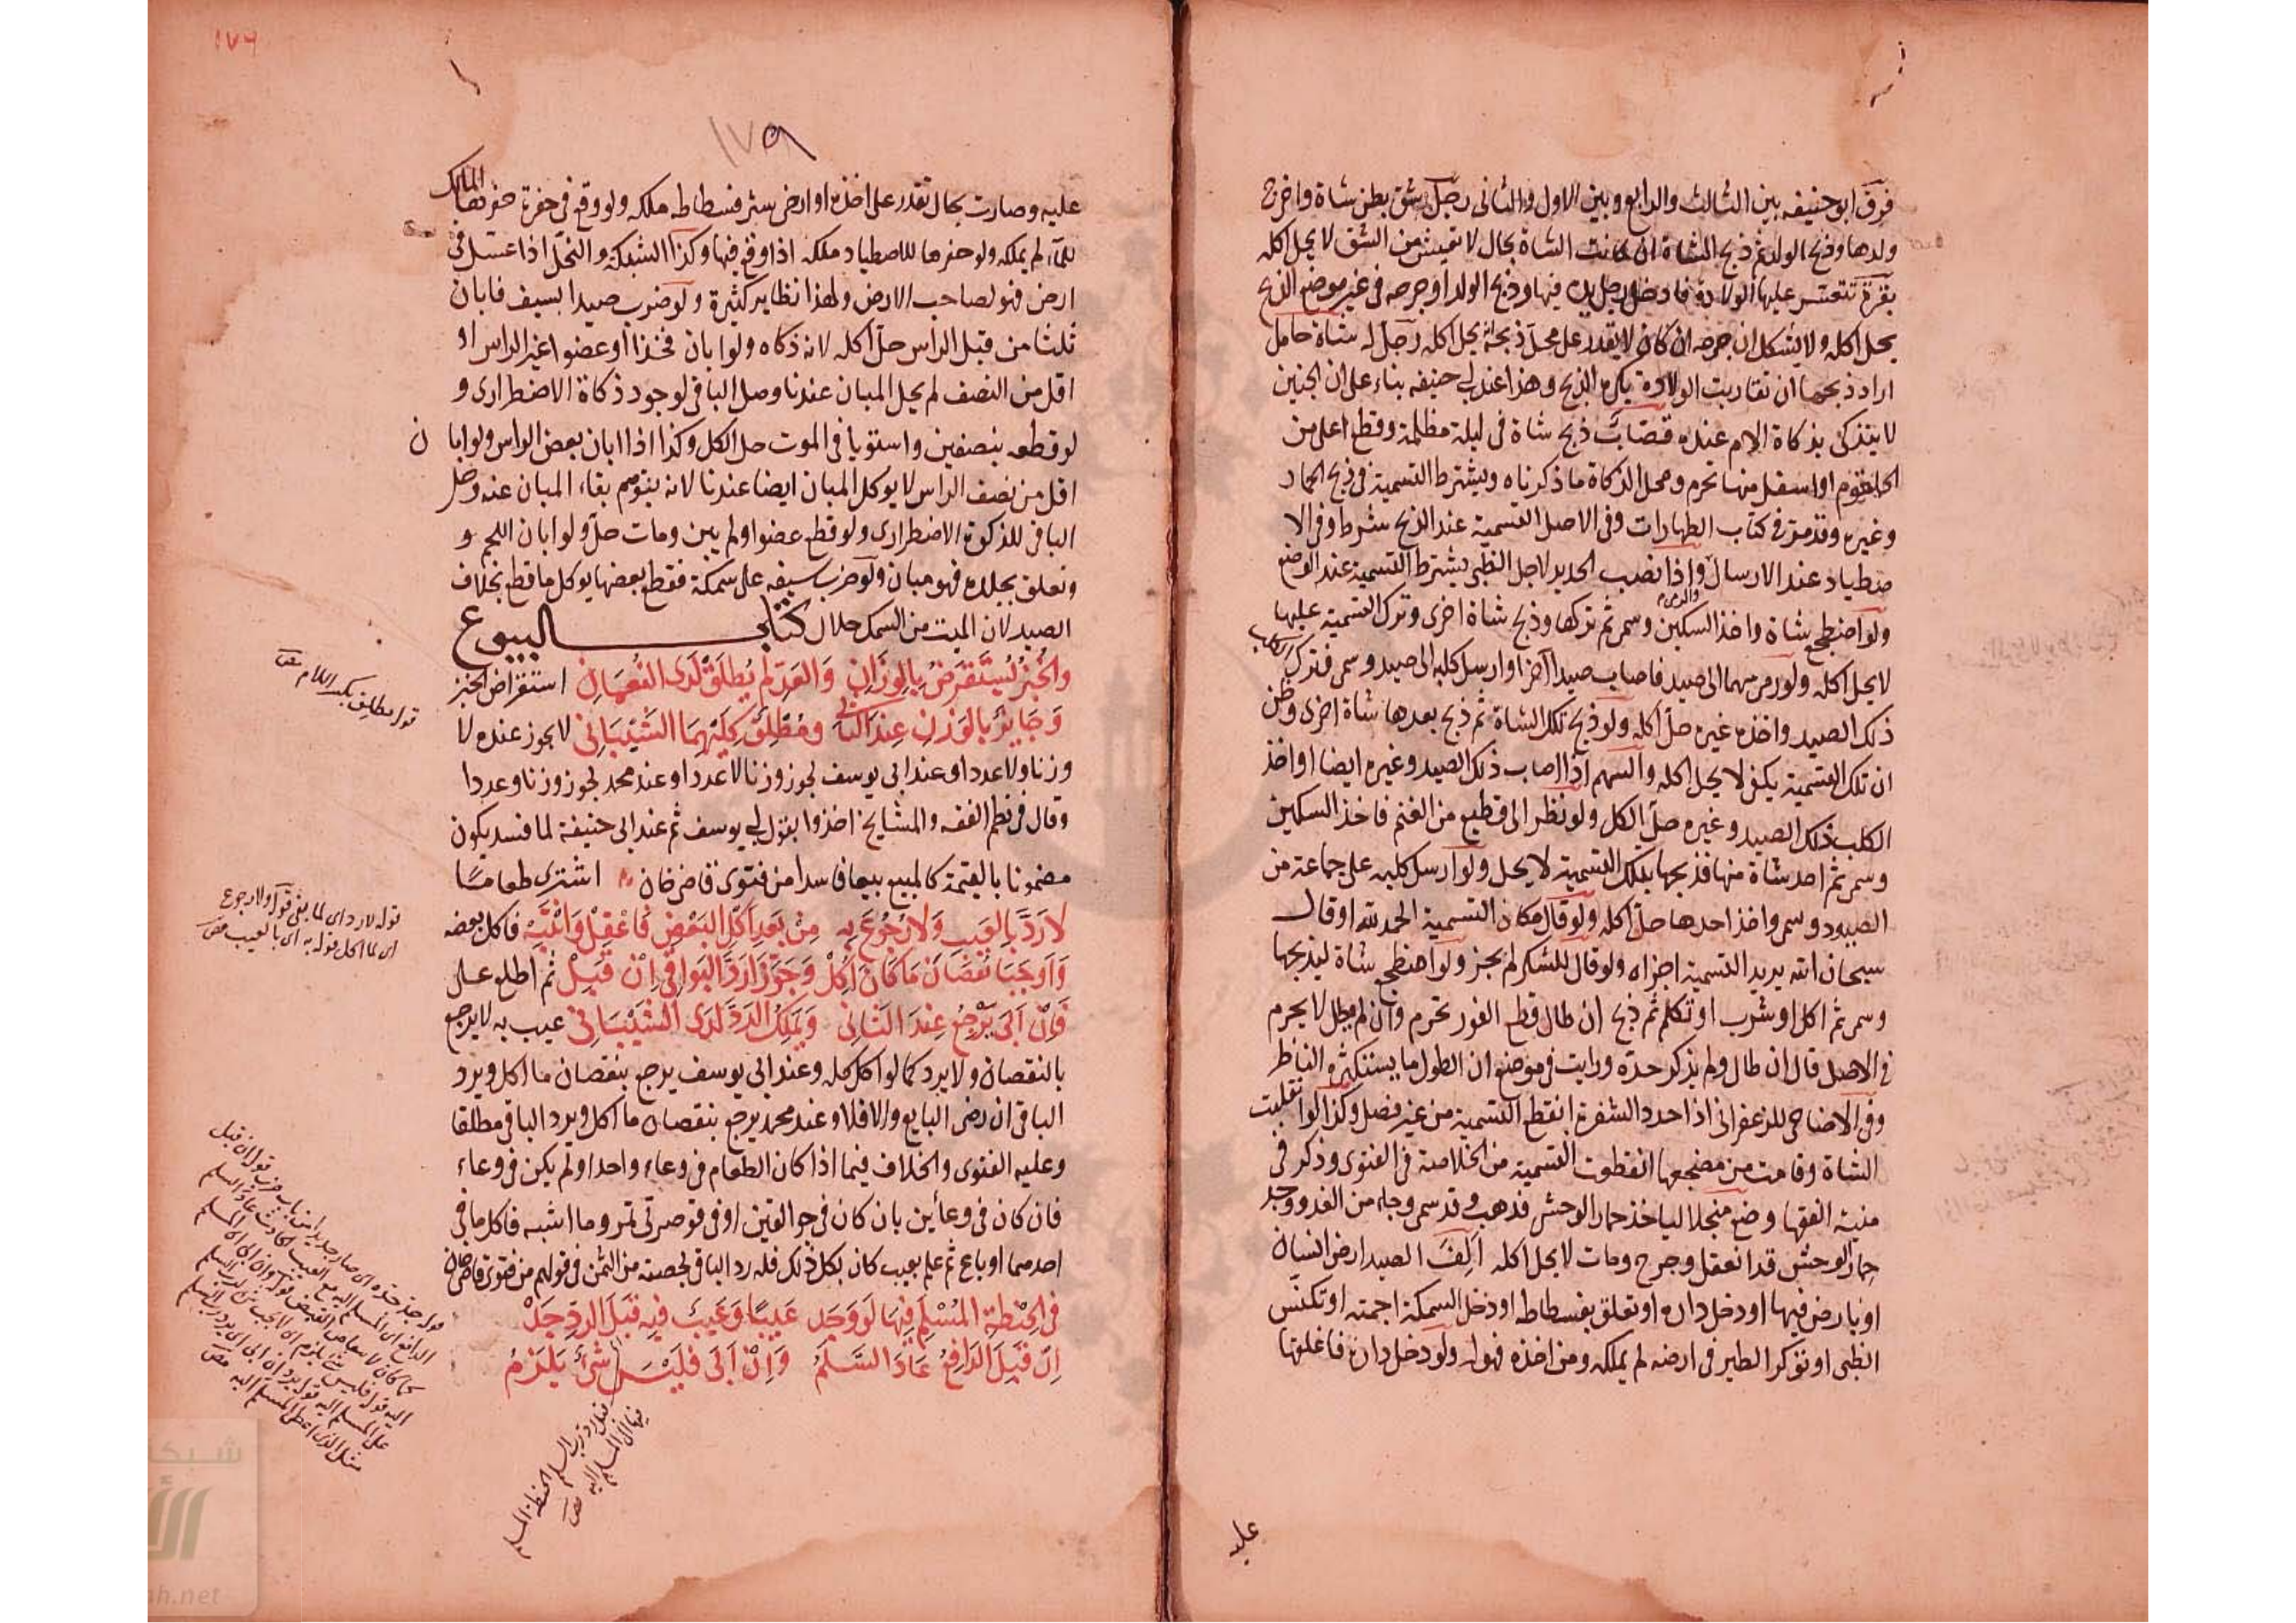 فرق ابو حنيفه بين الثالث والرابع وبين الاول والثانى رجل شق بطن شاة واخرج
ولدها وذبح الولد ثم ذبح الشاة ان كانت الشاة بحال لا تعيش من الشق لا يحل اكله
بقرة تتعسر عليها الولادة فادخل رجل يده فيها وذبح الولد او جرحه فى غير موضع الذبح
يحل اكله ولا يشكل ان جرحه ان كان لا يقدر على محل ذبحه يحل اكله رجل له شاة حامل
اراد ذبحها ان تقاربت الولادة يكره الذبح وهذا عند ابى حنيفه بناء على ان الجنين
لا يتذكى بذكاة الام عنده قصاب ذبح شاة فى ليلة مظلمة وقطع اعلى من
الحلقوم او اسفل منها تحرم ومحل الذكاة ما ذكرناه ويشترط التسمية فى ذبح الحمار
وغيره وقد مر فى كتاب الطهارات وفى الاصل التسمية عند الذبح شرط وفى الا
صطياد عند الارسال والرمى واذا نصب الحديد لاجل الظبى يشترط التسمية عند الوضع
ولو اضطجع شاة واخذ السكين وسمى ثم تركها وذبح شاة اخرى وترك التسمية عليها
لا يحل اكله ولو رمى سهما الى صيد فاصاب صيدا آخر او ارسل كلبه الى صيد وسمى فترك الكلب
ذلك الصيد واخذ غيره حل اكله ولو ذبح تلك الشاة ثم ذبح بعدها شاة اخرى وظن
ان تلك التسمية يكفى لا يحل اكله والسهم اذا اصاب ذلك الصيد وغيره ايضا او اخذ
الكلب ذلك الصيد وغيره حل الكل ولو نظر الى قطيع من الغنم فاخذ السكين
وسمى ثم اخذ شاة منها فذبحها بتلك التسمية لا يحل ولو ارسل كلبه على جماعة من
الصيود وسمى واخذ احدها حل اكله ولو قال مكان التسمية الحمد لله او قال
سبحان الله يريد التسمية اجزاه ولو قال للشكر لم يجز ولو اضطجع شاة ليذبحها
وسمى ثم اكل او شرب او تكلم ثم ذبح ان طال قطع الفور تحرم وان لم يطل لا يحرم
فى الاصل قال ان طال ولم يذكر حده ورايت فى موضع ان الطول ما يستكثره الناظر
وفى الاضاحى للزعفرانى اذا حدد الشفرة انقطع التسمية من غير فصل وكذا لو انقلبت
الشاة وقامت من مضجعها انقطعت التسمية من الخلاصة فى الفتوى وذكر فى
منية الفقها وضع منجلا لياخذ حمار الوحش فذهب وقد سمى وجاء من الغد ووجد
حمار الوحش قد انعقل وجرح ومات لا يحل اكله الف الصيد ارض انسان
او باض فيها او دخل داره او تعلق بفسطاطه او دخل السمكة اجمته او تكنس
الظبى او توكر الطير فى ارضه لم يملكه ومن اخذه فهو له ولو دخل داره فاغلقها
عليه
١٧٦
١٧٩
عليه وصارت بحال تقدر على اخذه او ارض نشر فسطاطه ملكه ولو وقع فى حفرة حفرها المالك
للماء لم يملكه ولو حفرها للاصطياد ملكه اذا وقع فيها وكذا الشبكة والنحل اذا عسل فى
ارض فهو لصاحب الارض ولهذا نظاير كثيرة ولو ضرب صيدا بسيف فابان
ثلثا من قبل الراس حل اكله لانه ذكاه ولو ابان فخذا او عضوا غير الراس او
اقل من النصف لم يحل المبان عندنا وحل الباقى لوجود ذكاة الاضطرارى و
لو قطعه بنصفين واستويا فى الموت حل الكل وكذا اذا ابان بعض الراس ولو ابا ن
اقل من نصف الراس لا يوكل المبان ايضا عندنا لانه يتوهم بقاء المبان عنه وحل
الباقى للذكوة الاضطرارى ولو قطع عضوا ولم يبن ومات حل ولو ابان اللحم و
وتعلق بجلده فهو مبان ولو ضرب بسيفه على سمكة فقطع بعضها يوكل ما قطع بخلاف
الصيد لان الميت من السمك حلال كتاب البيوع
والخبز يستقرض بالوزان والعد لم يطلق لدى النعمان استقراض الخبز
وجايز بالوزن عند الثانى ومطلق كليهما الشيبانى لا يجوز عنده لا
وزنا ولا عددا وعند ابى يوسف يجوز وزنا لا عددا وعند محمد يجوز وزنا وعددا
وقال فى نظم الفقه والمشايخ اخذوا بقول ابى يوسف ثم عند ابى حنيفة لما فسد يكون
مضمونا بالقيمة كالمبيع بيعا فاسدا من فتوى قاضى خان اشترى طعاما
لا رد بالعيب ولا رجوع به من بعد اكل البعض فاعقل وانتبه فاكل بعضه
واوجبا نقصان ما كان اكل وجوزا رد البواقى ان قبل ثم اطلع على
فان ابى يرجع عند الثانى ويملك الرد لدى الشيبانى عيب به لا يرجع
بالنقصان ولا يرد كما لو اكل كله وعند ابى يوسف يرجع بنقصان ما اكل ويرد
الباقى ان رضى البايع والا فلا وعند محمد يرجع بنقصان ما اكل ويرد الباقى مطلقا
وعليه الفتوى والخلاف فيما اذا كان الطعام فى وعاء واحد او لم يكن فى وعاء
فان كان فى وعائين بان كان فى جوالقين او فى قوصرتى تمر وما اشبه فاكل ما فى
احدهما او باع ثم علم بعيب كان بكل ذلك فله رد الباقى بحصته من الثمن فى قولهم من فتوى قاضى خان
فى الحنطة المسلم فيها لو وجد عيبا وعيب فيه قبل الرد جد
ان قبل الدافع عاد السلم وان ابى فليس شئ يلزم
قوله مطلق بكسر اللام
قوله لا رد اى لما بقى قوله ولا رجوع
اى لما اكل قوله به اى بالعيب